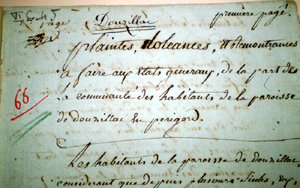 première page
Douzillac
plaintes, doleances, & Remontrances
a faire aux états generaux, de la part des
communauté des habitants de la paroisse
de douzillac en perigord
66
Les habitants de la paroisse de douzillac,
considerant que depuis plusieurs siecles,